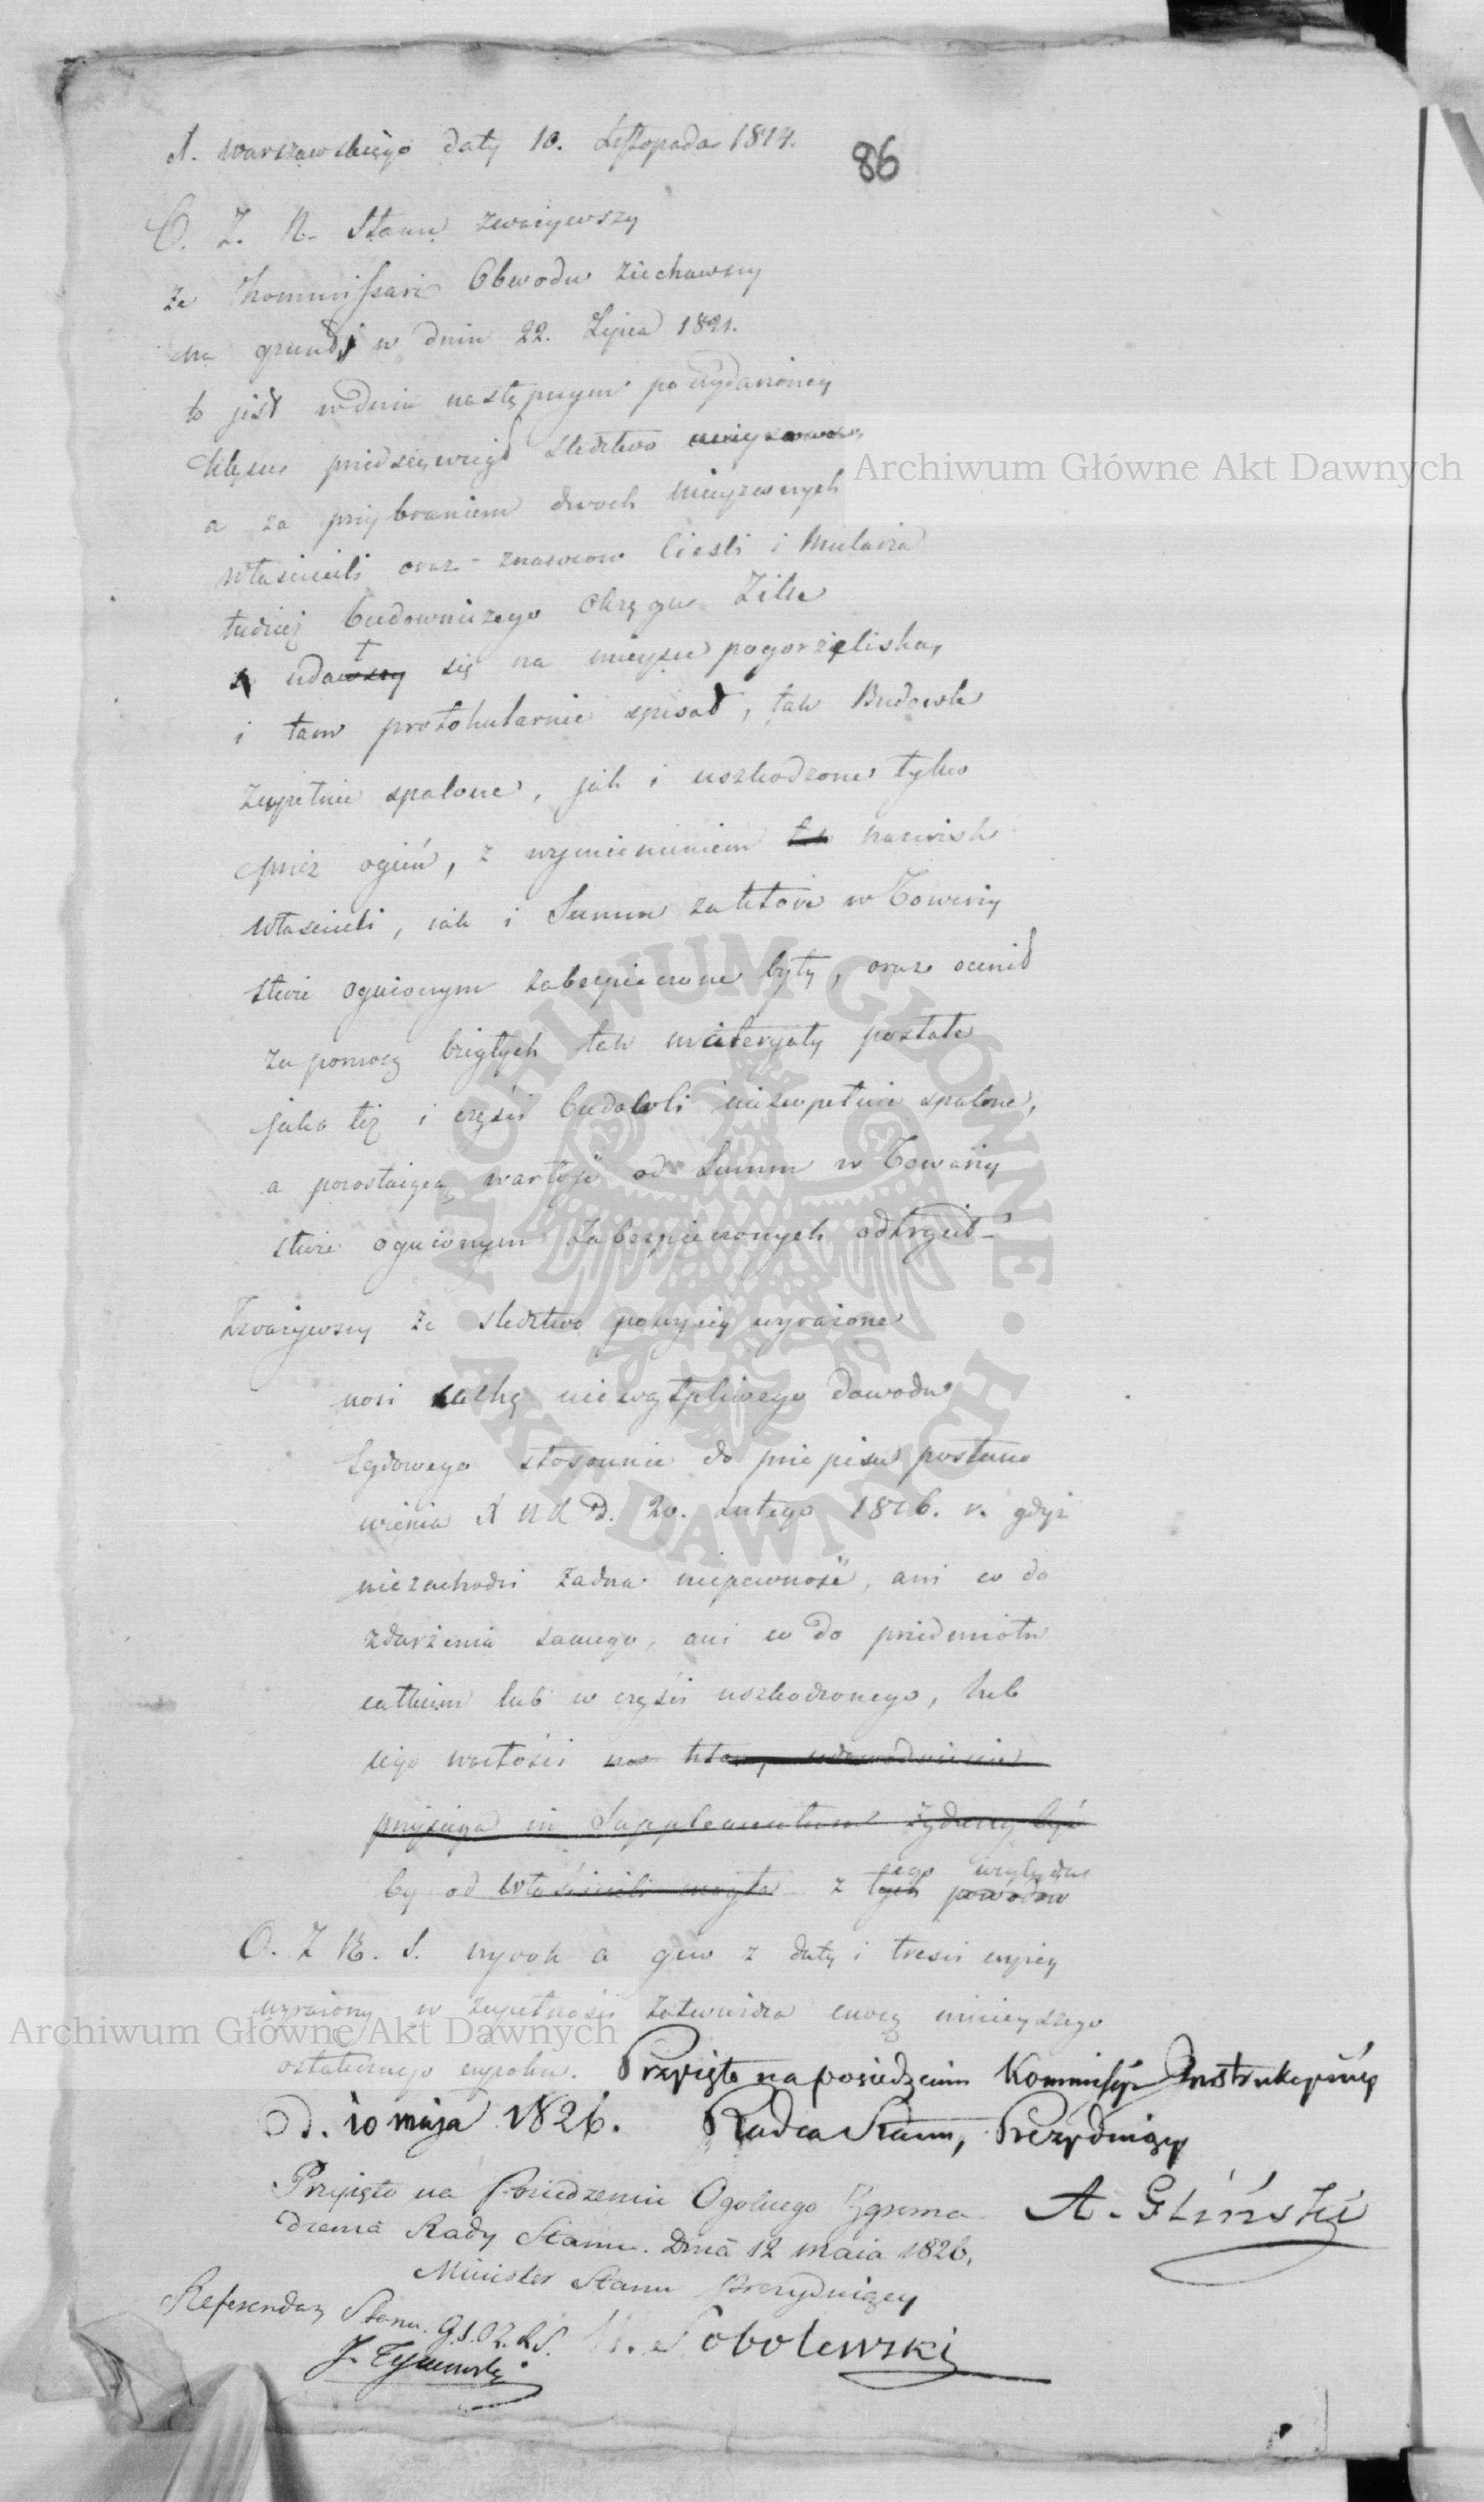 X. Warszawskiego daty 10. Listopada 1814.
86
O. Z. R. Stanu zważywszy
że Kommissarz Obwodu ziechawszy
na grunt w dniu 22. Lipca 1821.
to jest w dniu następnym po wydarzoney
klęsce przedsięwziął śledztwo
a za przybraniem dwoch mieyscowych
właścicieli oraz znawcow Cieśli i Mularza
tudzież budowniczego Okręgu
udał się na mieysce pogorzeliska,
i tam protokularnie spisał, tak Budowle
zupełnie spalone, jak i uszkodzone tylko
przez ogień, z wymienieniem nazwisk
właścicieli, iak i Summ za które w Towarzy
stwie ogniowym zabezpieczone były, oraz ocenił
za pomocą biegłych tak materyały pozostałe
jako też i części budowli niezupełnie spalone,
a pozostaiącą wartość od Summ w Towarzy
stwie ogniowym zabezpieczonych odtrącił
Zważywszy że śledztwo powyżey wyrażone
nosi cechę niewątpliwego dowodu
Sądowego stosownie do przepisu postano
wienia X N K d. 20. Lutego 1816. r. gdyż
niezachodzi żadna niepewność, ani co do
zdarzenia samego, ani co do przedmiotu
całkiem lub w części uszkodzonego, lub
iego wartości na którey udowodnienie
przysięga in Supplementum żądaną być
by od właścicieli mogła z tego względu
tych powodów
O. Z R. S. wyrok a quo z daty i treści wyżey
wyrażony w zupełności zatwierdza mocą ninieyszego
ostatecznego wyroku. Przyięto na posiedzeniu Kommissyi Instrukcyiney
D. 10 maja 1826. Radca Stanu, Prezyduiący
A. Gliński
Przyięto na Posiedzeniu Ogolnego Zgroma
dzenia Rady Stanu. Dnia 12 maia 1826.
Minister Stanu Prezyduiący
Sobolewski
Referendarz Stanu.
J. Tymowski
Archiwum Główne Akt Dawnych
ARCHIWUM GŁÓWNE AKT DAWNYCH
Archiwum Główne Akt Dawnych